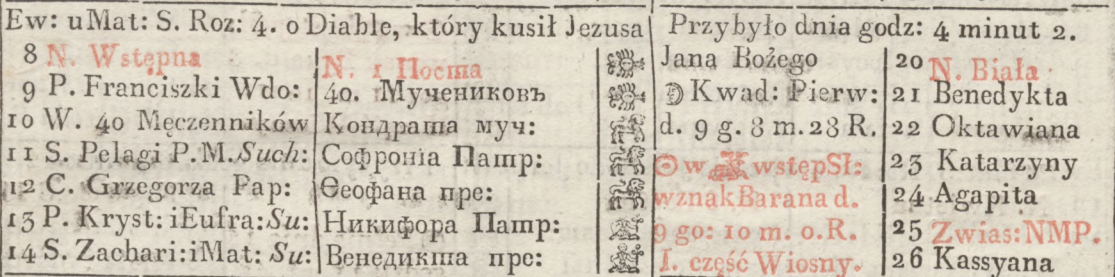 Ew: u Mat: S. Roz: 4. o Diable, który kusił Jezusa | Przybyło dnia godz: 4 minut 2.
8 N. Wstępna | N. 1 Поста | Jana Bożego | 20 N. Biała
9 P. Franciszki Wdo: | 40. Мучениковъ | Kwad: Pierw: | 21 Benedykta
10 W. 40 Męczenników | Кондрата муч: | d. 9 g. 8 m. 28 R. | 22 Oktawiana
11 S. Pelagi P. M. Such: | Софронїа Патр: | ☉ w wstęp Sł: | 23 Katarzyny
12 C. Grzegorza Pap: | Ѳеофана пре: | wznak Barana d. | 24 Agapita
13 P. Kryst: i Eufra: Su: | Никифора Патр: | 9 go: 10 m. o. R. | 25 Zwias: NMP.
14 S. Zachari: i Mat: Su: | Венедикта пре: | I. część Wiosny. | 26 Kassyana